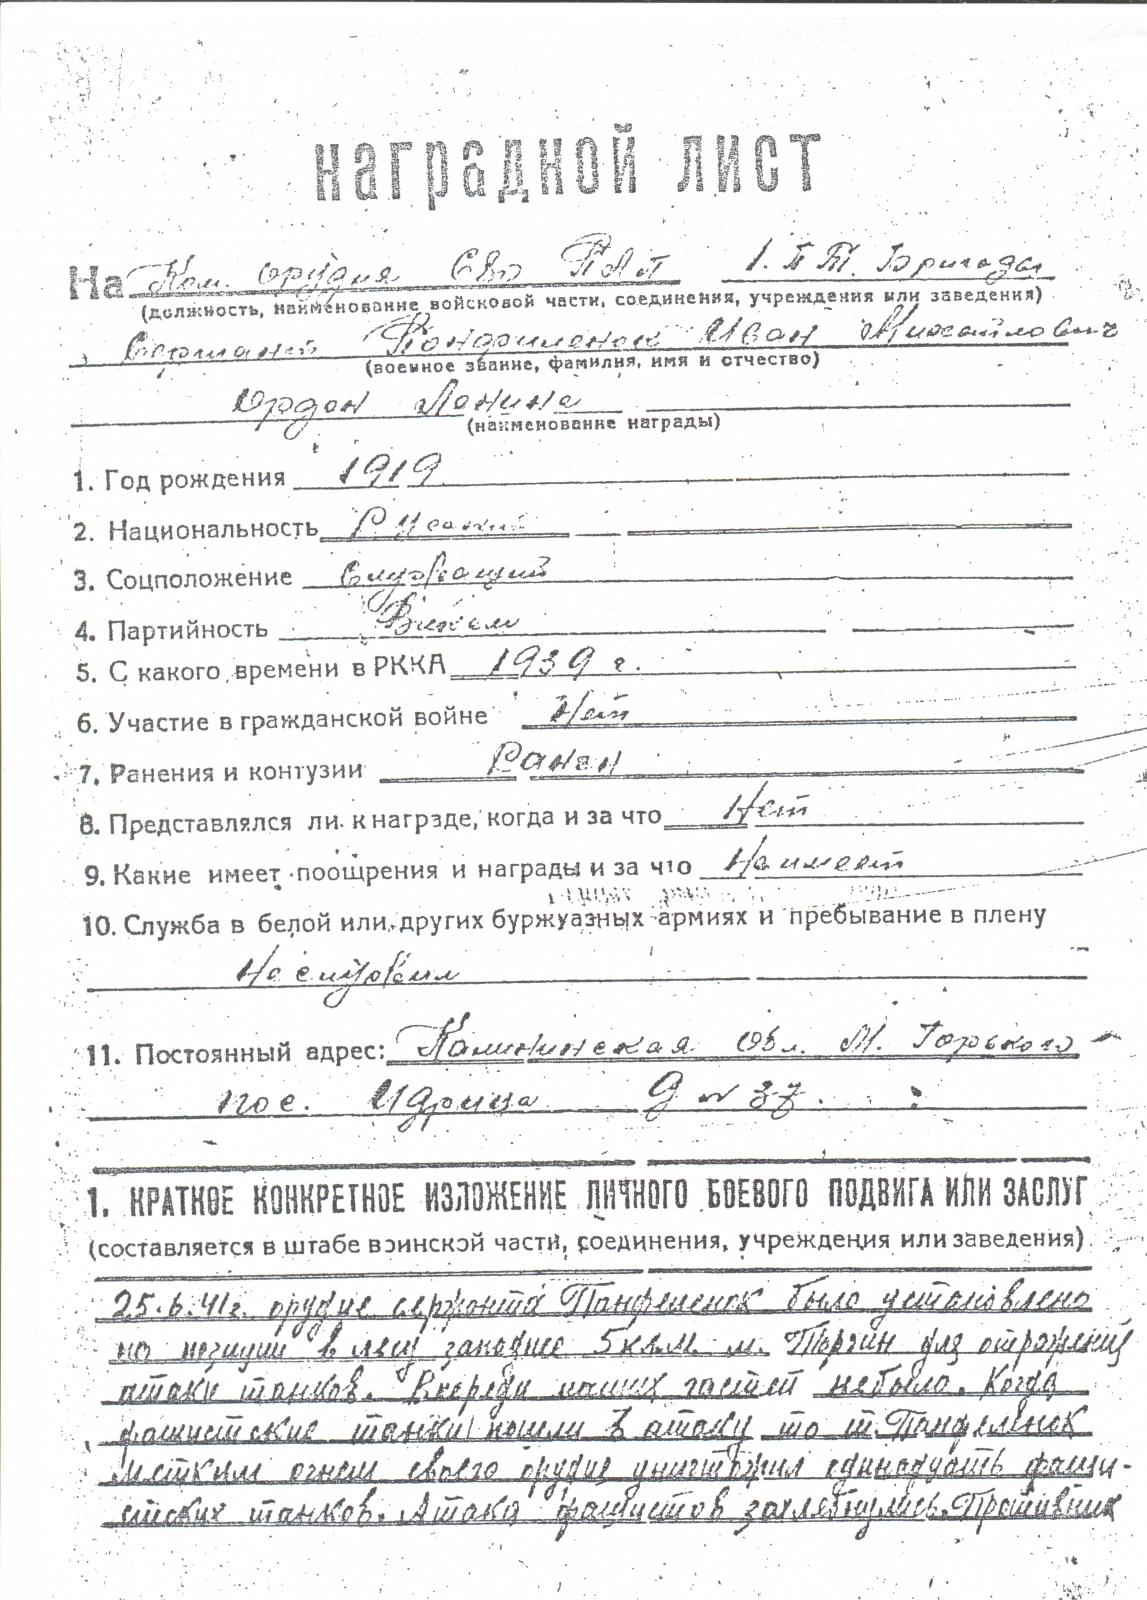 Наградной лист
На Ком. орудия 680 ПАП 1. ПТ. Бригады
(должность, наименование войсковой части, соединения, учреждения или заведения)
Сержант Панфиленок Иван Михайлович
(военное звание, фамилия, имя и отчество)
Орден Ленина
(наименование награды)
1. Год рождения 1919
2. Национальность Русский
3. Соцположение Служащий
4. Партийность
5. С какого времени в РККА 1939 г.
6. Участие в гражданской войне Нет
7. Ранения и контузии Ранен
8. Представлялся ли к награде, когда и за что Нет
9. Какие имеет поощрения и награды и за что Не имеет
10. Служба в белой или других буржуазных армиях и пребывание в плену
Не служил
11. Постоянный адрес: Калининская обл. М. Горького
пос. Идрица д № 37.
1. КРАТКОЕ КОНКРЕТНОЕ ИЗЛОЖЕНИЕ ЛИЧНОГО БОЕВОГО ПОДВИГА ИЛИ ЗАСЛУГ
(составляется в штабе воинской части, соединения, учреждения или заведения)
25.6.41г. орудие сержанта Панфеленок было установлено
на позиции в лесу западнее 5 клм. м. Торгин для отражения
атаки танков. Впереди наших частей небыло. Когда
фашистские танки пошли в атаку то т. Панфеленок
метким огнем своего орудия уничтожил одинадцать фаши-
стских танков. Атака фашистов захлебнулась. Противник